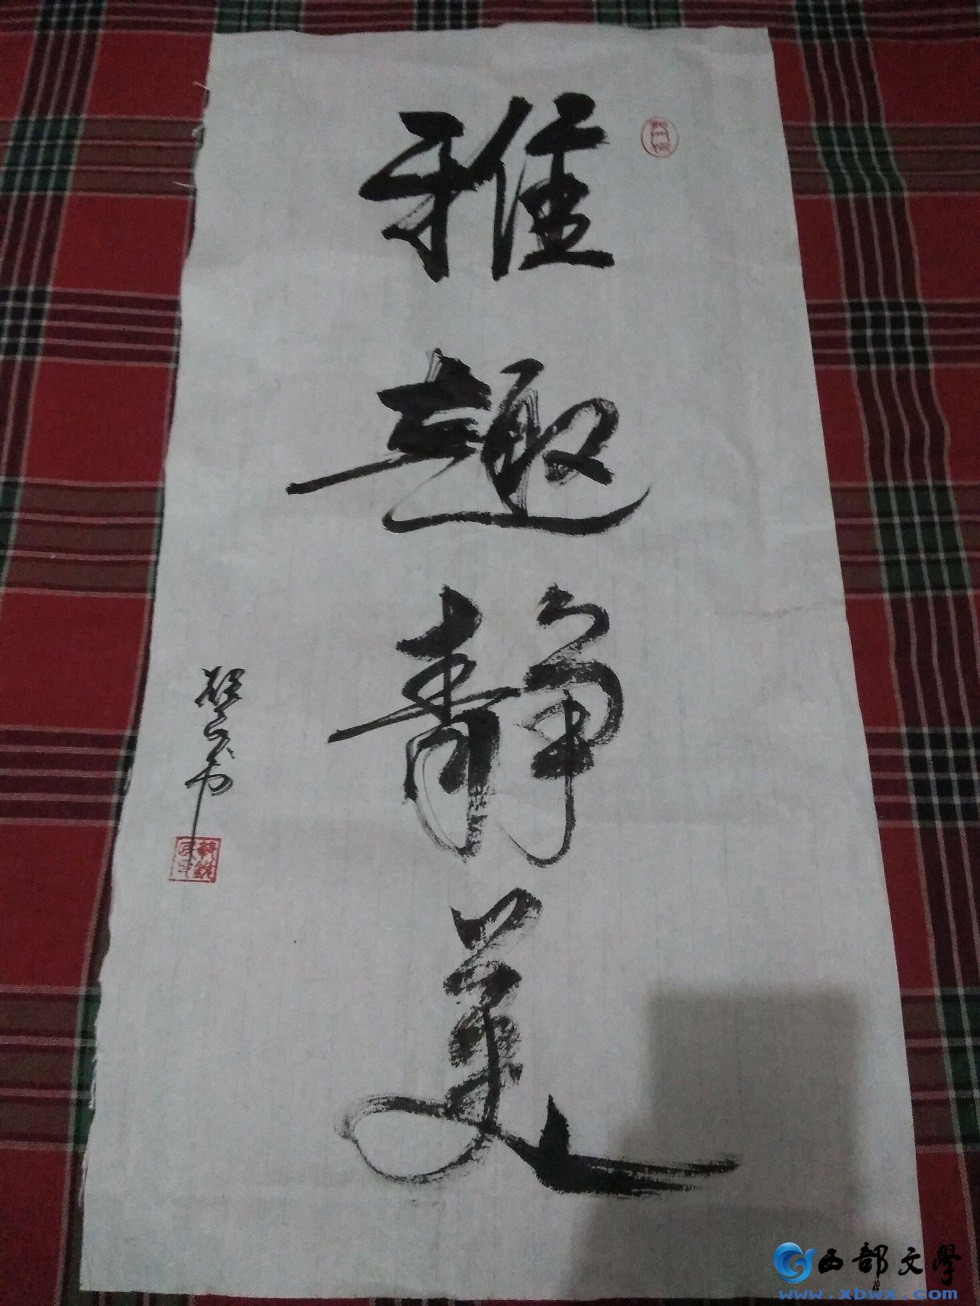 雅趣静美
西部文學
www.xbwx.com